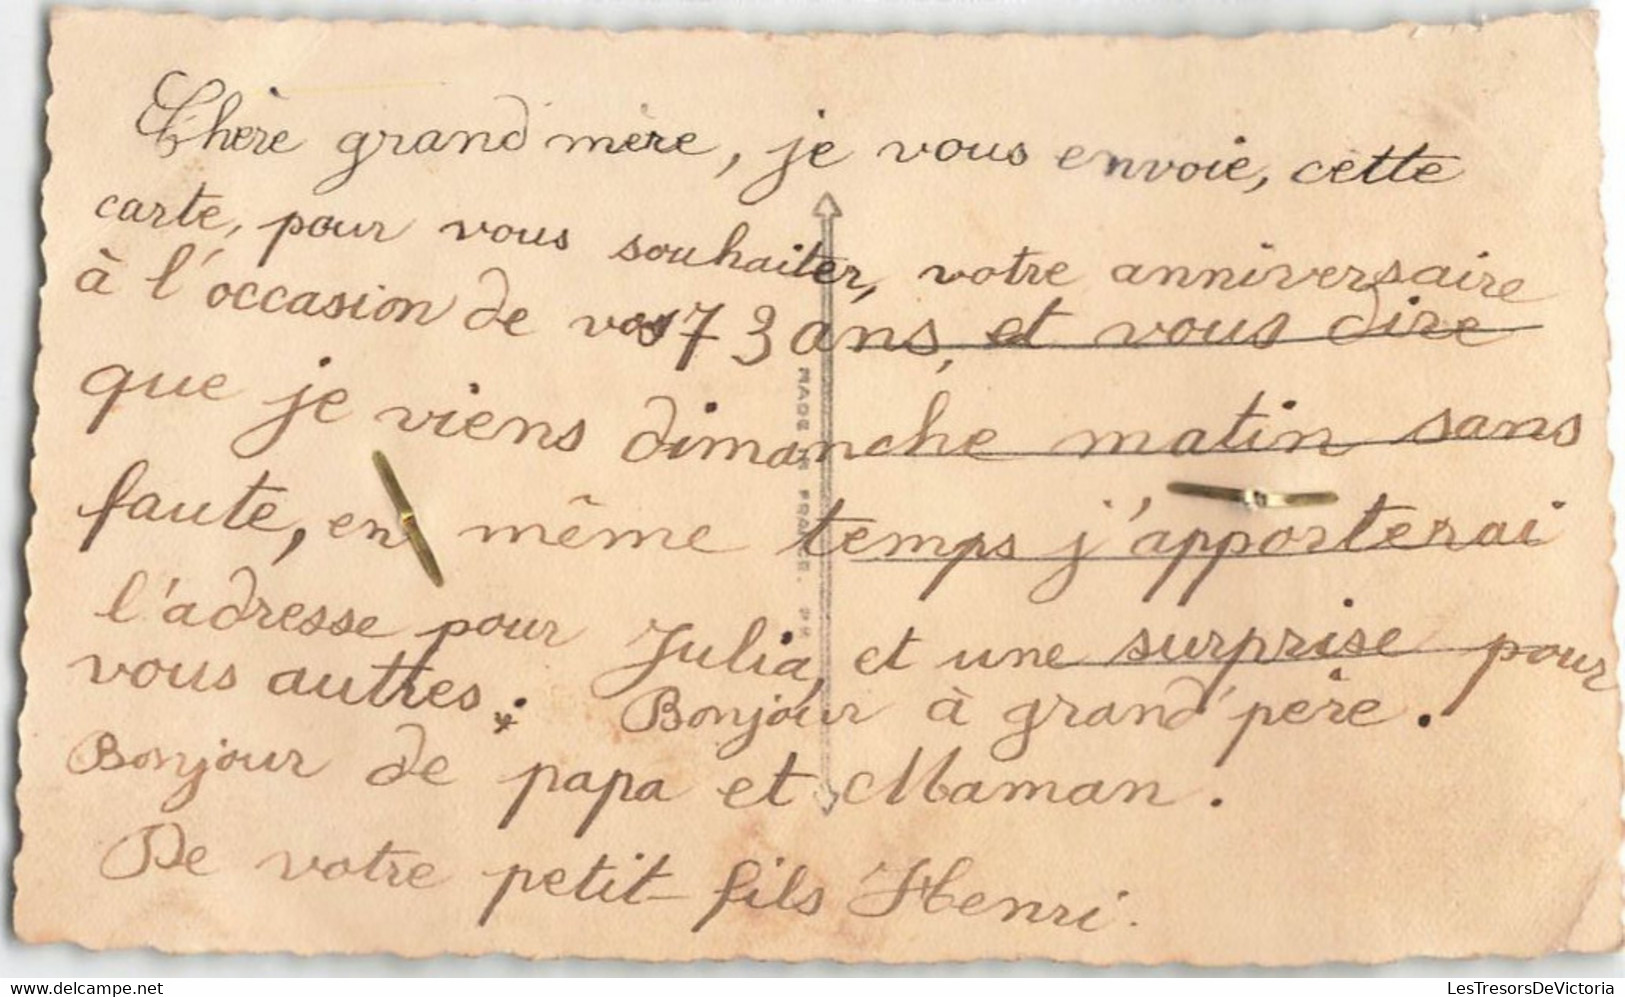 Chère grand'mère, je vous envoie, cette
carte, pour vous souhaiter, votre anniversaire
à l'occasion de vos 73 ans, et vous dire
que je viens dimanche matin sans
faute, en même temps j'apporterai
l'adresse pour Julia, et une surprise pour
vous autres. Bonjour à grand'père.
Bonjour de papa et Maman.
De votre petit-fils Henri.
MADE IN FRANCE.
www.delcampe.net
LesTresorsDeVictoria